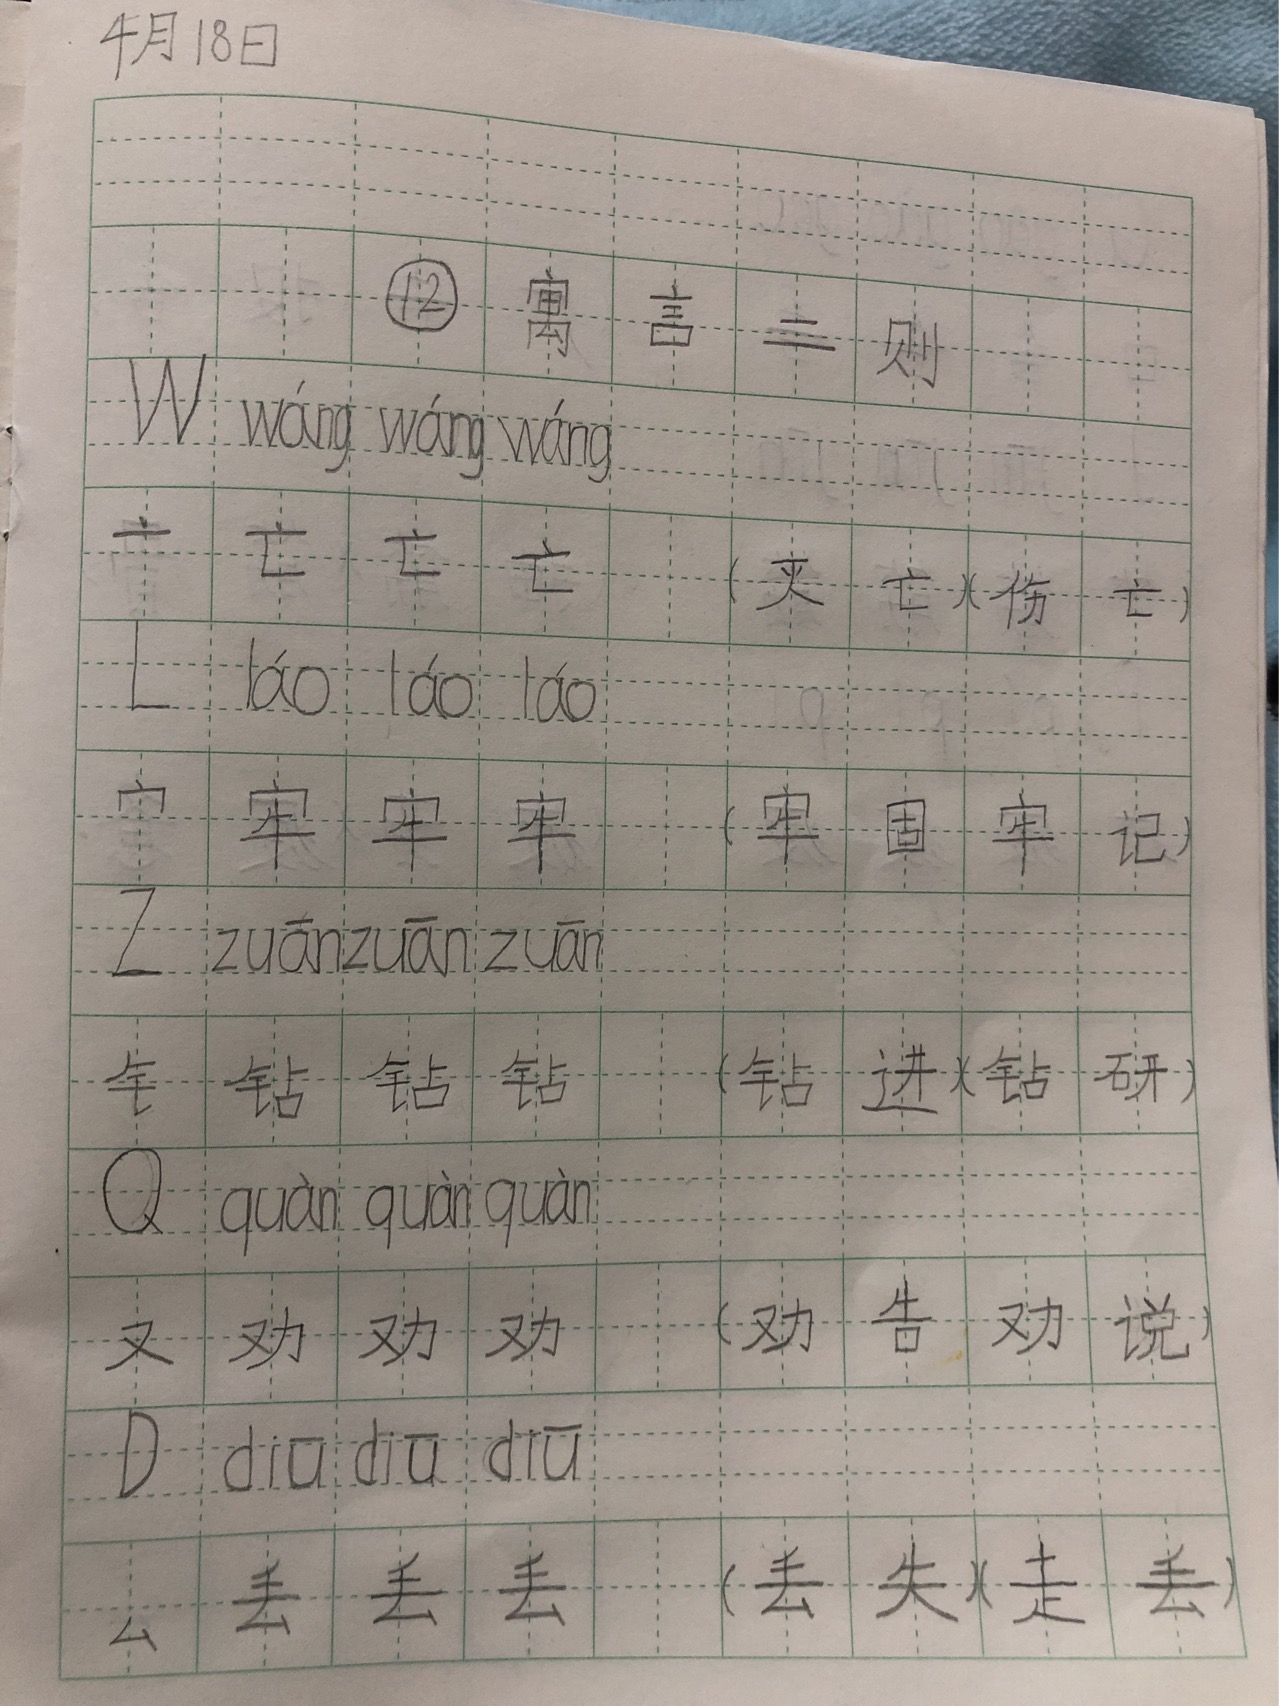 4月18日
⑫ 寓言二则
W wáng wáng wáng
亠 亡 亡 亡 (灭亡)(伤亡)
L láo láo láo
宀 牢 牢 牢 (牢固 牢记)
Z zuān zuān zuān
钅 钻 钻 钻 (钻进)(钻研)
Q quàn quàn quàn
又 劝 劝 劝 (劝告 劝说)
D diū diū diū
厶 丢 丢 丢 (丢失)(走丢)